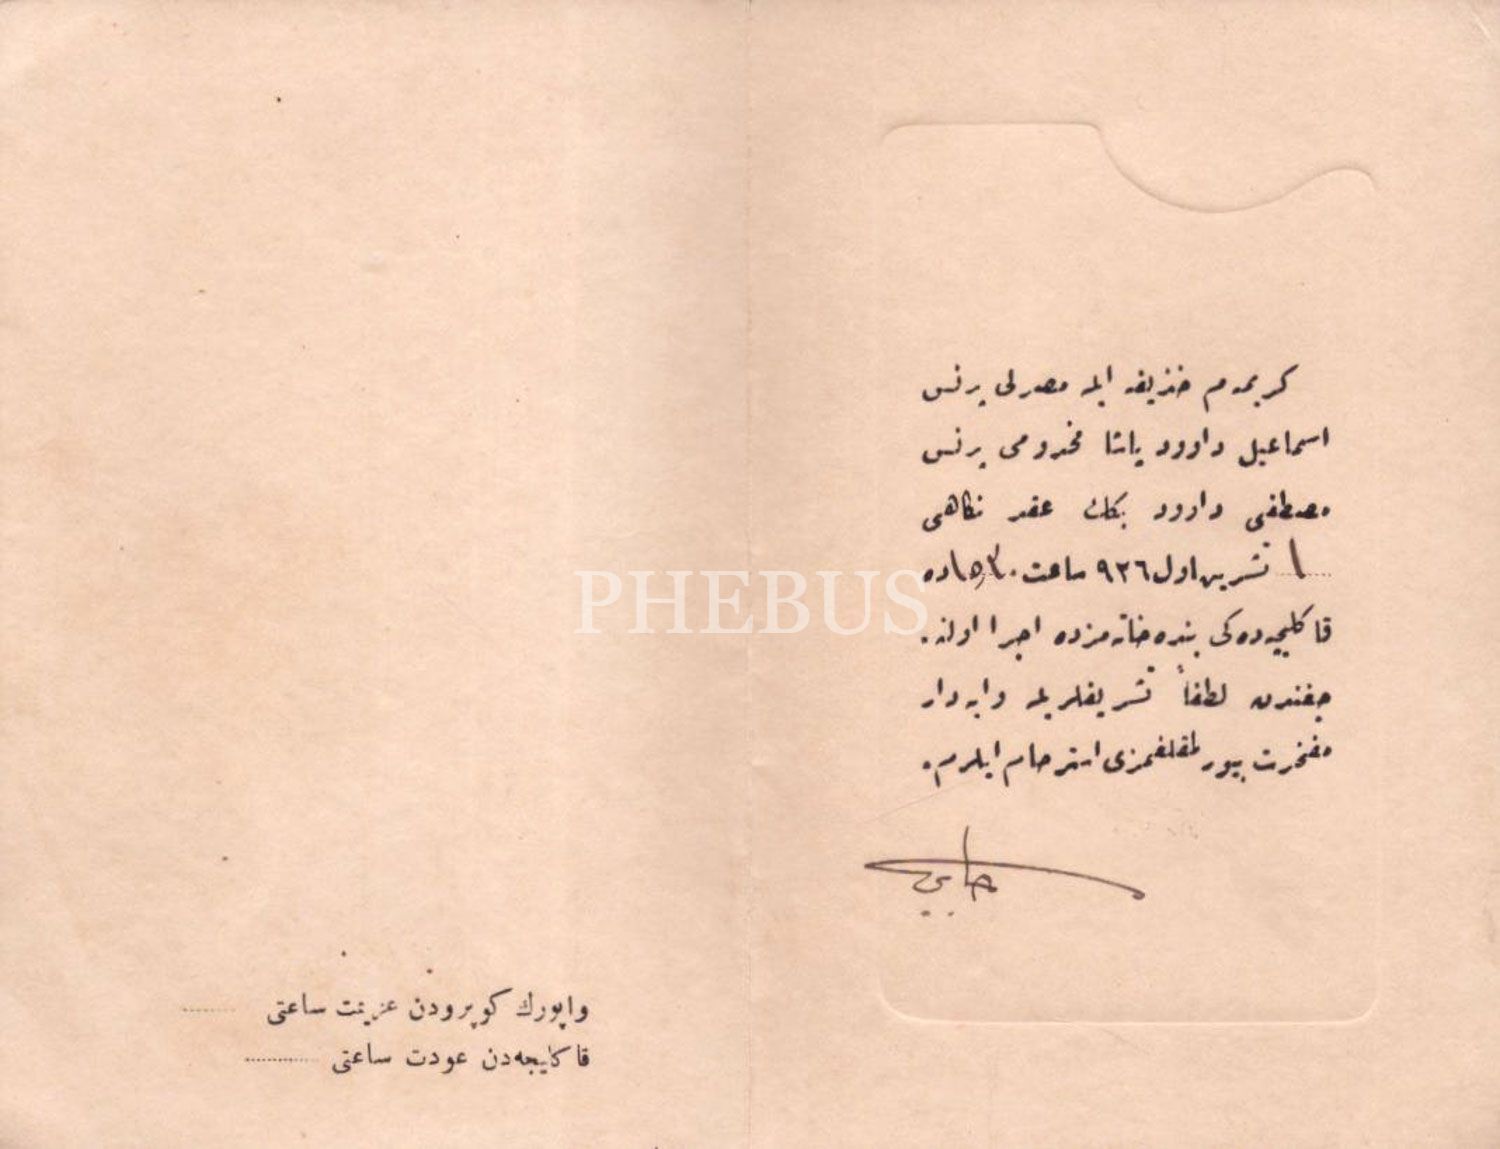 كريمه‌م خذيفه ايله مصرلى پرنس
اسماعيل داوود پاشا مخدومى پرنس
مصطفى داوود بكك عقد نكاهى
١ تشرين اول ٩٢٦ ساعت ده
قاكليجه‌ده‌كى بنده‌خانه‌مزده اجرا اولنه‌-
جغندن لطفاً تشريفلريله وايه‌دار
مفخرت بيورلمقلغمزى استرحام ايلرم.
واپورك كوپرودن عزيمت ساعتى ........
قاكليجه‌دن عودت ساعتى ........
PHEBUS